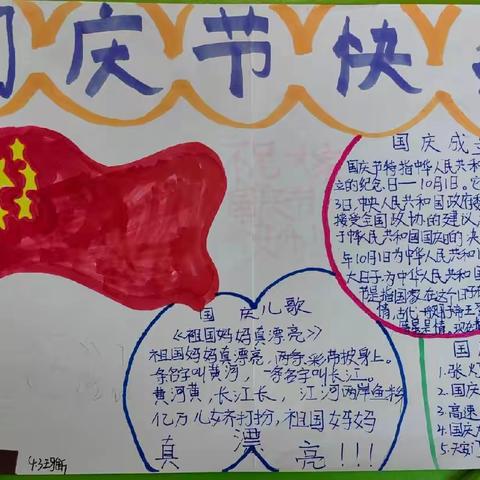 国庆节快
国庆成
国庆节特指中华人民共和
立的纪念日—10月1日。
3日,中央人民共和国政府
接受全国政协的建议
于中华人民共和国国庆日的决
年10月1日为中华人民共和
大日子,为中华人民共和国
节是指国家在这个日子
情,古代一般
国庆儿歌
《祖国妈妈真漂亮》
祖国妈妈真漂亮,两条彩带披身上。
一条名字叫黄河,一条名字叫长江。
黄河黄,长江长,江河两岸鱼粉
亿万儿女齐打扮,祖国妈妈
真漂亮!!!
国
1.张灯
2.国庆
3.高速
4.国庆
5.天安门